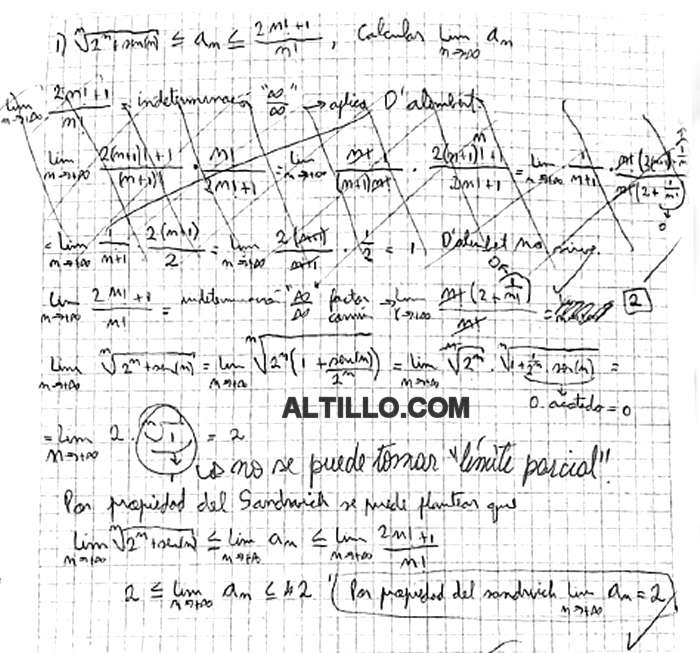 1) ⁿ√(2ⁿ+sen(n)) ≤ aₙ ≤ (2n!+1)/n! , Calcular lim n→∞ aₙ
lim n→+∞ (2n!+1)/n! = indeterminación "∞/∞" → aplico D'alembert
lim n→+∞ (2(n+1)!+1)/(n+1)! · n!/(2n!+1) = lim n→+∞ n!/((n+1)n!) · (2(n+1)!+1)/(2n!+1) = lim n→+∞ 1/(n+1) · n!(2(n+1)+1/n!)/(n!(2+1/n!)) → 0
= lim n→+∞ 1/(n+1) · 2(n+1)/2 = lim n→+∞ 2(n+1)/(n+1) · 1/2 = 1 D'alembert no sirve.
lim n→+∞ (2n!+1)/n! = indeterminación "∞/∞" factor común → lim n!(2+1/n!)/n! = 2
lim n→+∞ ⁿ√(2ⁿ+sen(n)) = lim n→+∞ ⁿ√(2ⁿ(1+sen(n)/2ⁿ)) = lim n→+∞ ⁿ√2ⁿ · ⁿ√(1+1/2ⁿ · sen(n)) =
0.acotado = 0
ALTILLO.COM
= lim n→+∞ 2 · ⁿ√1 = 2
↳ no se puede tomar "límite parcial"!
Por propiedad del Sandwich se puede plantear que
lim n→+∞ ⁿ√(2ⁿ+sen(n)) ≤ lim n→+∞ aₙ ≤ lim n→+∞ (2n!+1)/n!
2 ≤ lim n→+∞ aₙ ≤ 2 Por propiedad del sandwich lim n→+∞ aₙ = 2